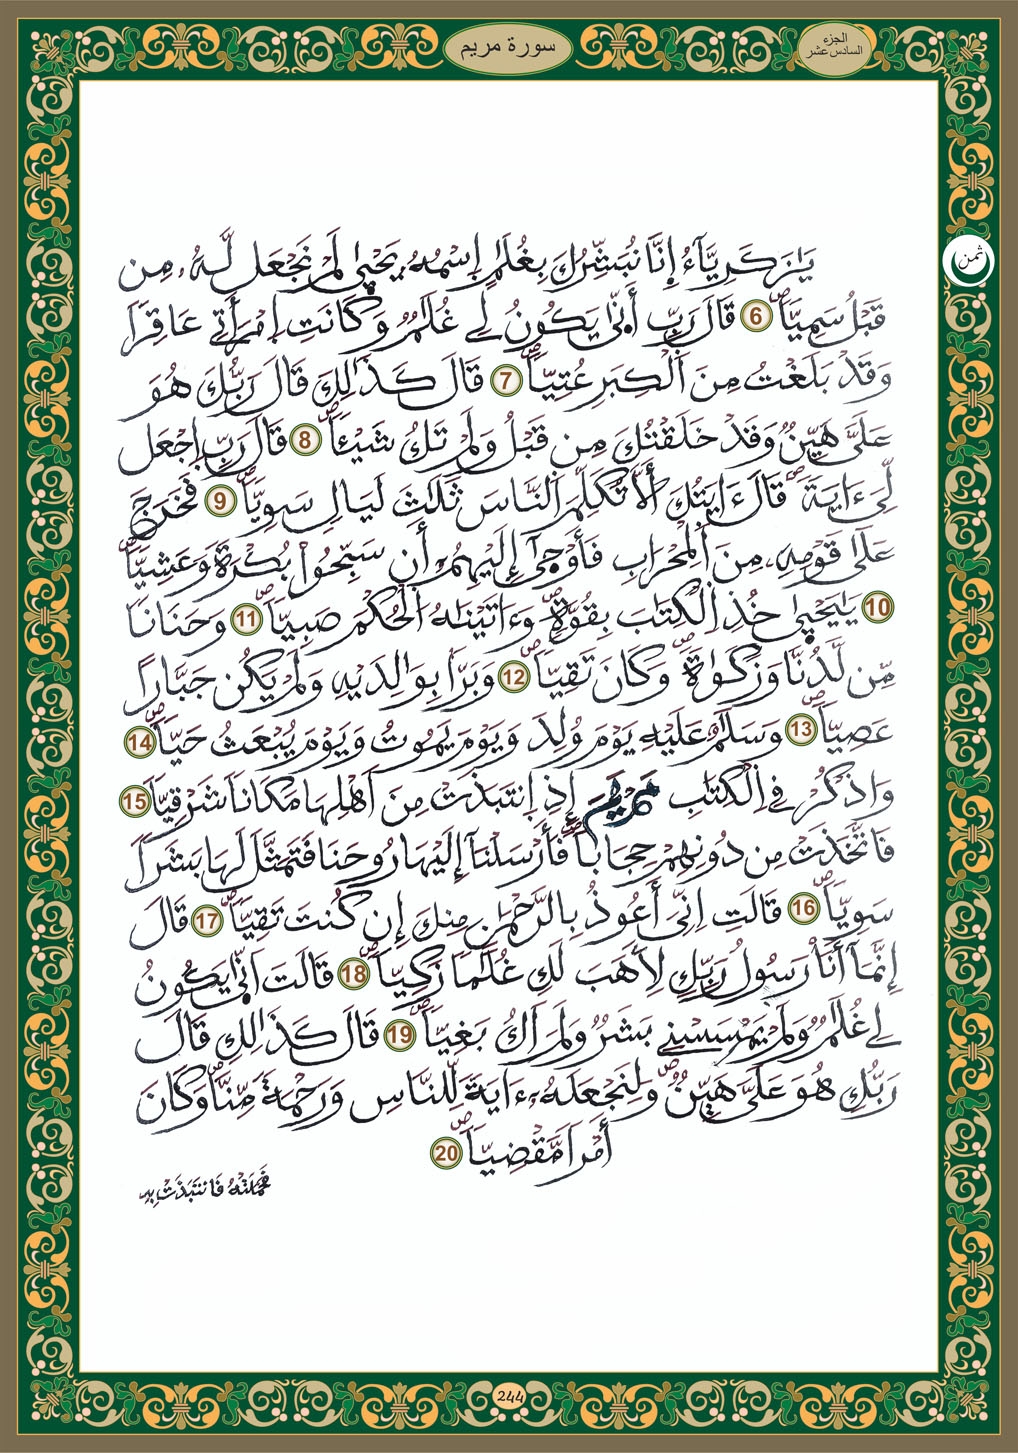 سورة مريم
الجزء
السادس عشر
ثمن
يَٰزَكَرِيَّآءُ إِنَّا نُبَشِّرُكَ بِغُلَٰمٍ اِسْمُهُۥ يَحْيۭيٰ لَمْ نَجْعَل لَّهُۥ مِن
قَبْلُ سَمِيّاٗۖ 6 قَالَ رَبِّ أَنّۭيٰ يَكُونُ لِے غُلَٰمٞ وَكَانَتِ اِمْرَأَتِے عَاقِراٗ
وَقَدْ بَلَغْتُ مِنَ اَلْكِبَرِ عُتِيّاٗۖ 7 قَالَ كَذَٰلِكَ قَالَ رَبُّكَ هُوَ
عَلَيَّ هَيِّنٞ وَقَدْ خَلَقْتُكَ مِن قَبْلُ وَلَمْ تَكُ شَيْـٔاٗۖ 8 قَالَ رَبِّ اِجْعَل
لِّيَ ءَايَةٗۖ قَالَ ءَايَتُكَ أَلَّا تُكَلِّمَ اَلنَّاسَ ثَلَٰثَ لَيَالٖ سَوِيّاٗۖ 9 فَخَرَجَ
عَلَىٰ قَوْمِهِۦ مِنَ اَلْمِحْرَابِ فَأَوْحۭيٰ إِلَيْهِمُۥ أَن سَبِّحُواْ بُكْرَةٗ وَعَشِيّاٗۖ
10 يَٰيَحْيۭيٰ خُذِ اِلْكِتَٰبَ بِقُوَّةٖۖ وَءَاتَيْنَٰهُ اُلْحُكْمَ صَبِيّاٗۖ 11 وَحَنَاناٗ
مِّن لَّدُنَّا وَزَكَوٰةٗۖ وَكَانَ تَقِيّاٗۖ 12 وَبَرَّاۢ بِوَٰلِدَيْهِ وَلَمْ يَكُن جَبَّاراً
عَصِيّاٗۖ 13 وَسَلَٰمٌ عَلَيْهِ يَوْمَ وُلِدَ وَيَوْمَ يَمُوتُ وَيَوْمَ يُبْعَثُ حَيّاٗۖ 14
وَاذْكُرْ فِے اِلْكِتَٰبِ مَرْيَمَ إِذِ اِنتَبَذَتْ مِنَ اَهْلِهَا مَكَاناٗ شَرْقِيّاٗ 15
فَاتَّخَذَتْ مِن دُونِهِمْ حِجَاباٗۖ فَأَرْسَلْنَآ إِلَيْهَا رُوحَنَا فَتَمَثَّلَ لَهَا بَشَراٗ
سَوِيّاٗۖ 16 قَالَتِ اِنِّيَ أَعُوذُ بِالرَّحْمَٰنِ مِنكَ إِن كُنتَ تَقِيّاٗۖ 17 قَالَ
إِنَّمَآ أَنَا۠ رَسُولُ رَبِّكِ لِأَهَبَ لَكِ غُلَٰماٗ زَكِيّاٗۖ 18 قَالَتَ اَنّۭيٰ يَكُونُ
لِے غُلَٰمٞ وَلَمْ يَمْسَسْنِے بَشَرٞ وَلَمَ اَكُ بَغِيّاٗۖ 19 قَالَ كَذَٰلِكِ قَالَ
رَبُّكِ هُوَ عَلَيَّ هَيِّنٞۖ وَلِنَجْعَلَهُۥ ءَايَةٗ لِّلنَّاسِ وَرَحْمَةٗ مِّنَّاۖ وَكَانَ
أَمْراٗ مَّقْضِيّاٗۖ 20
فَحَمَلَتْهُ فَانتَبَذَتْ بِهِ
244